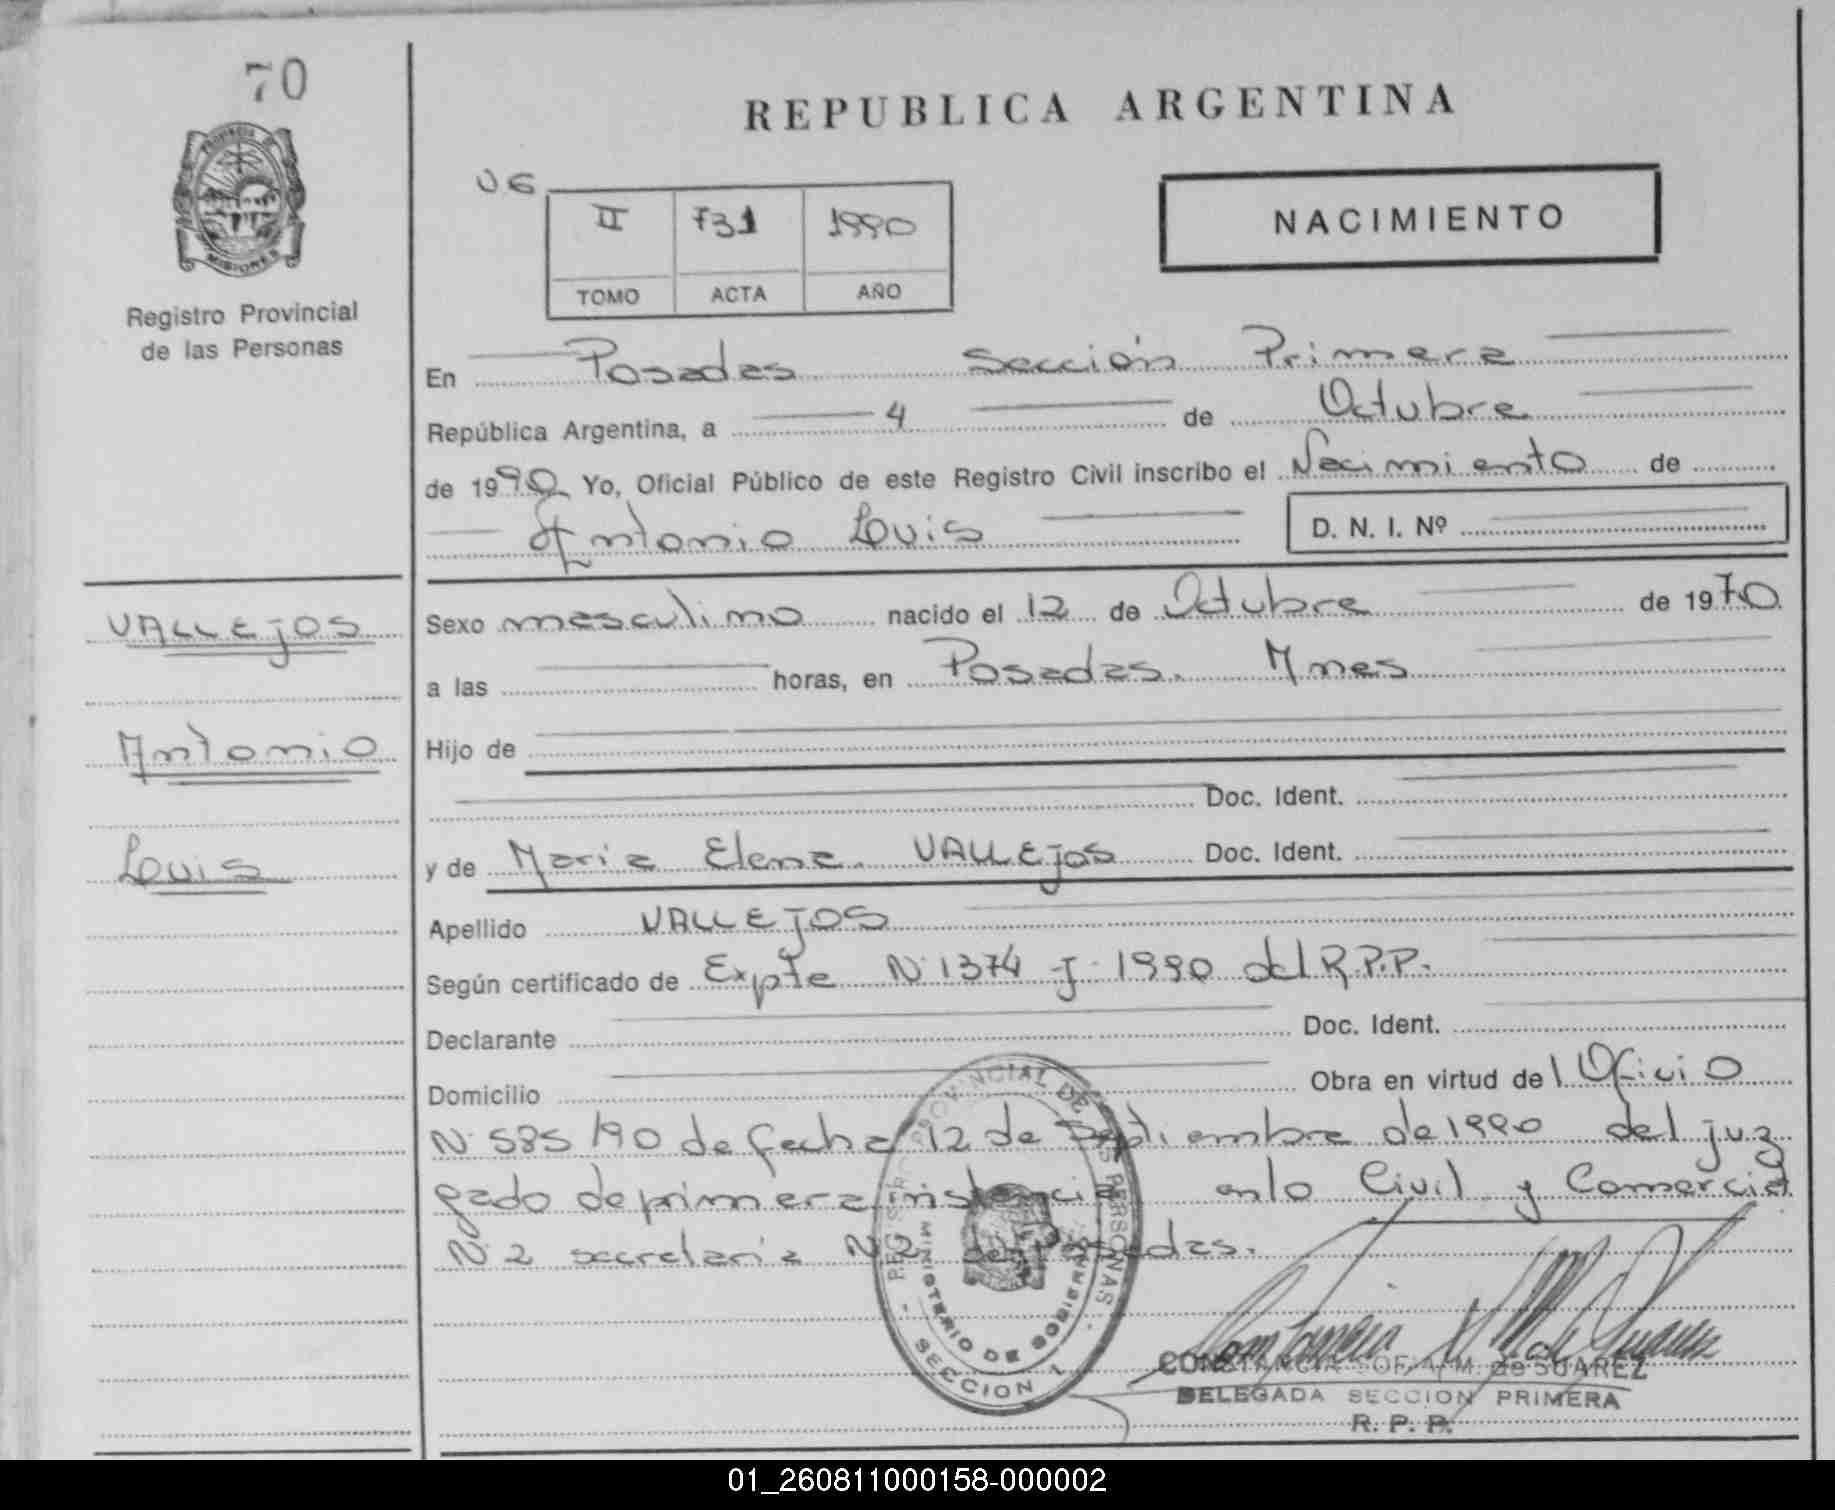 70
REPUBLICA ARGENTINA
PROVINCIA DE
MISIONES
Registro Provincial
de las Personas
U6
II 731 1990
TOMO ACTA AÑO
NACIMIENTO
En Posadas Sección Primera
República Argentina, a 4 de Octubre
de 1990 Yo, Oficial Público de este Registro Civil inscribo el Nacimiento de
Antonio Louis D. N. I. Nº
VALLEJOS
Antonio
Louis
Sexo masculino nacido el 12 de Octubre de 1970
a las horas, en Posadas. Mnes
Hijo de
Doc. Ident.
y de Maria Elena VALLEJOS Doc. Ident.
Apellido VALLEJOS
Según certificado de Expte N·1374 -J- 1990 del R.P.P.
Declarante Doc. Ident.
Domicilio Obra en virtud del Oficio
N·585/90 de fecha 12 de Septiembre de 1990 del juz
gado de primera instancia en lo Civil y Comercial
N·2 secretaria N·2 de Posadas.
REGISTRO PROVINCIAL DE LAS PERSONAS
MINISTERIO DE GOBIERNO
SECCION 1
CONSTANCIA SOFIA M. de SUAREZ
DELEGADA SECCION PRIMERA
R. P. P.
01_260811000158-000002